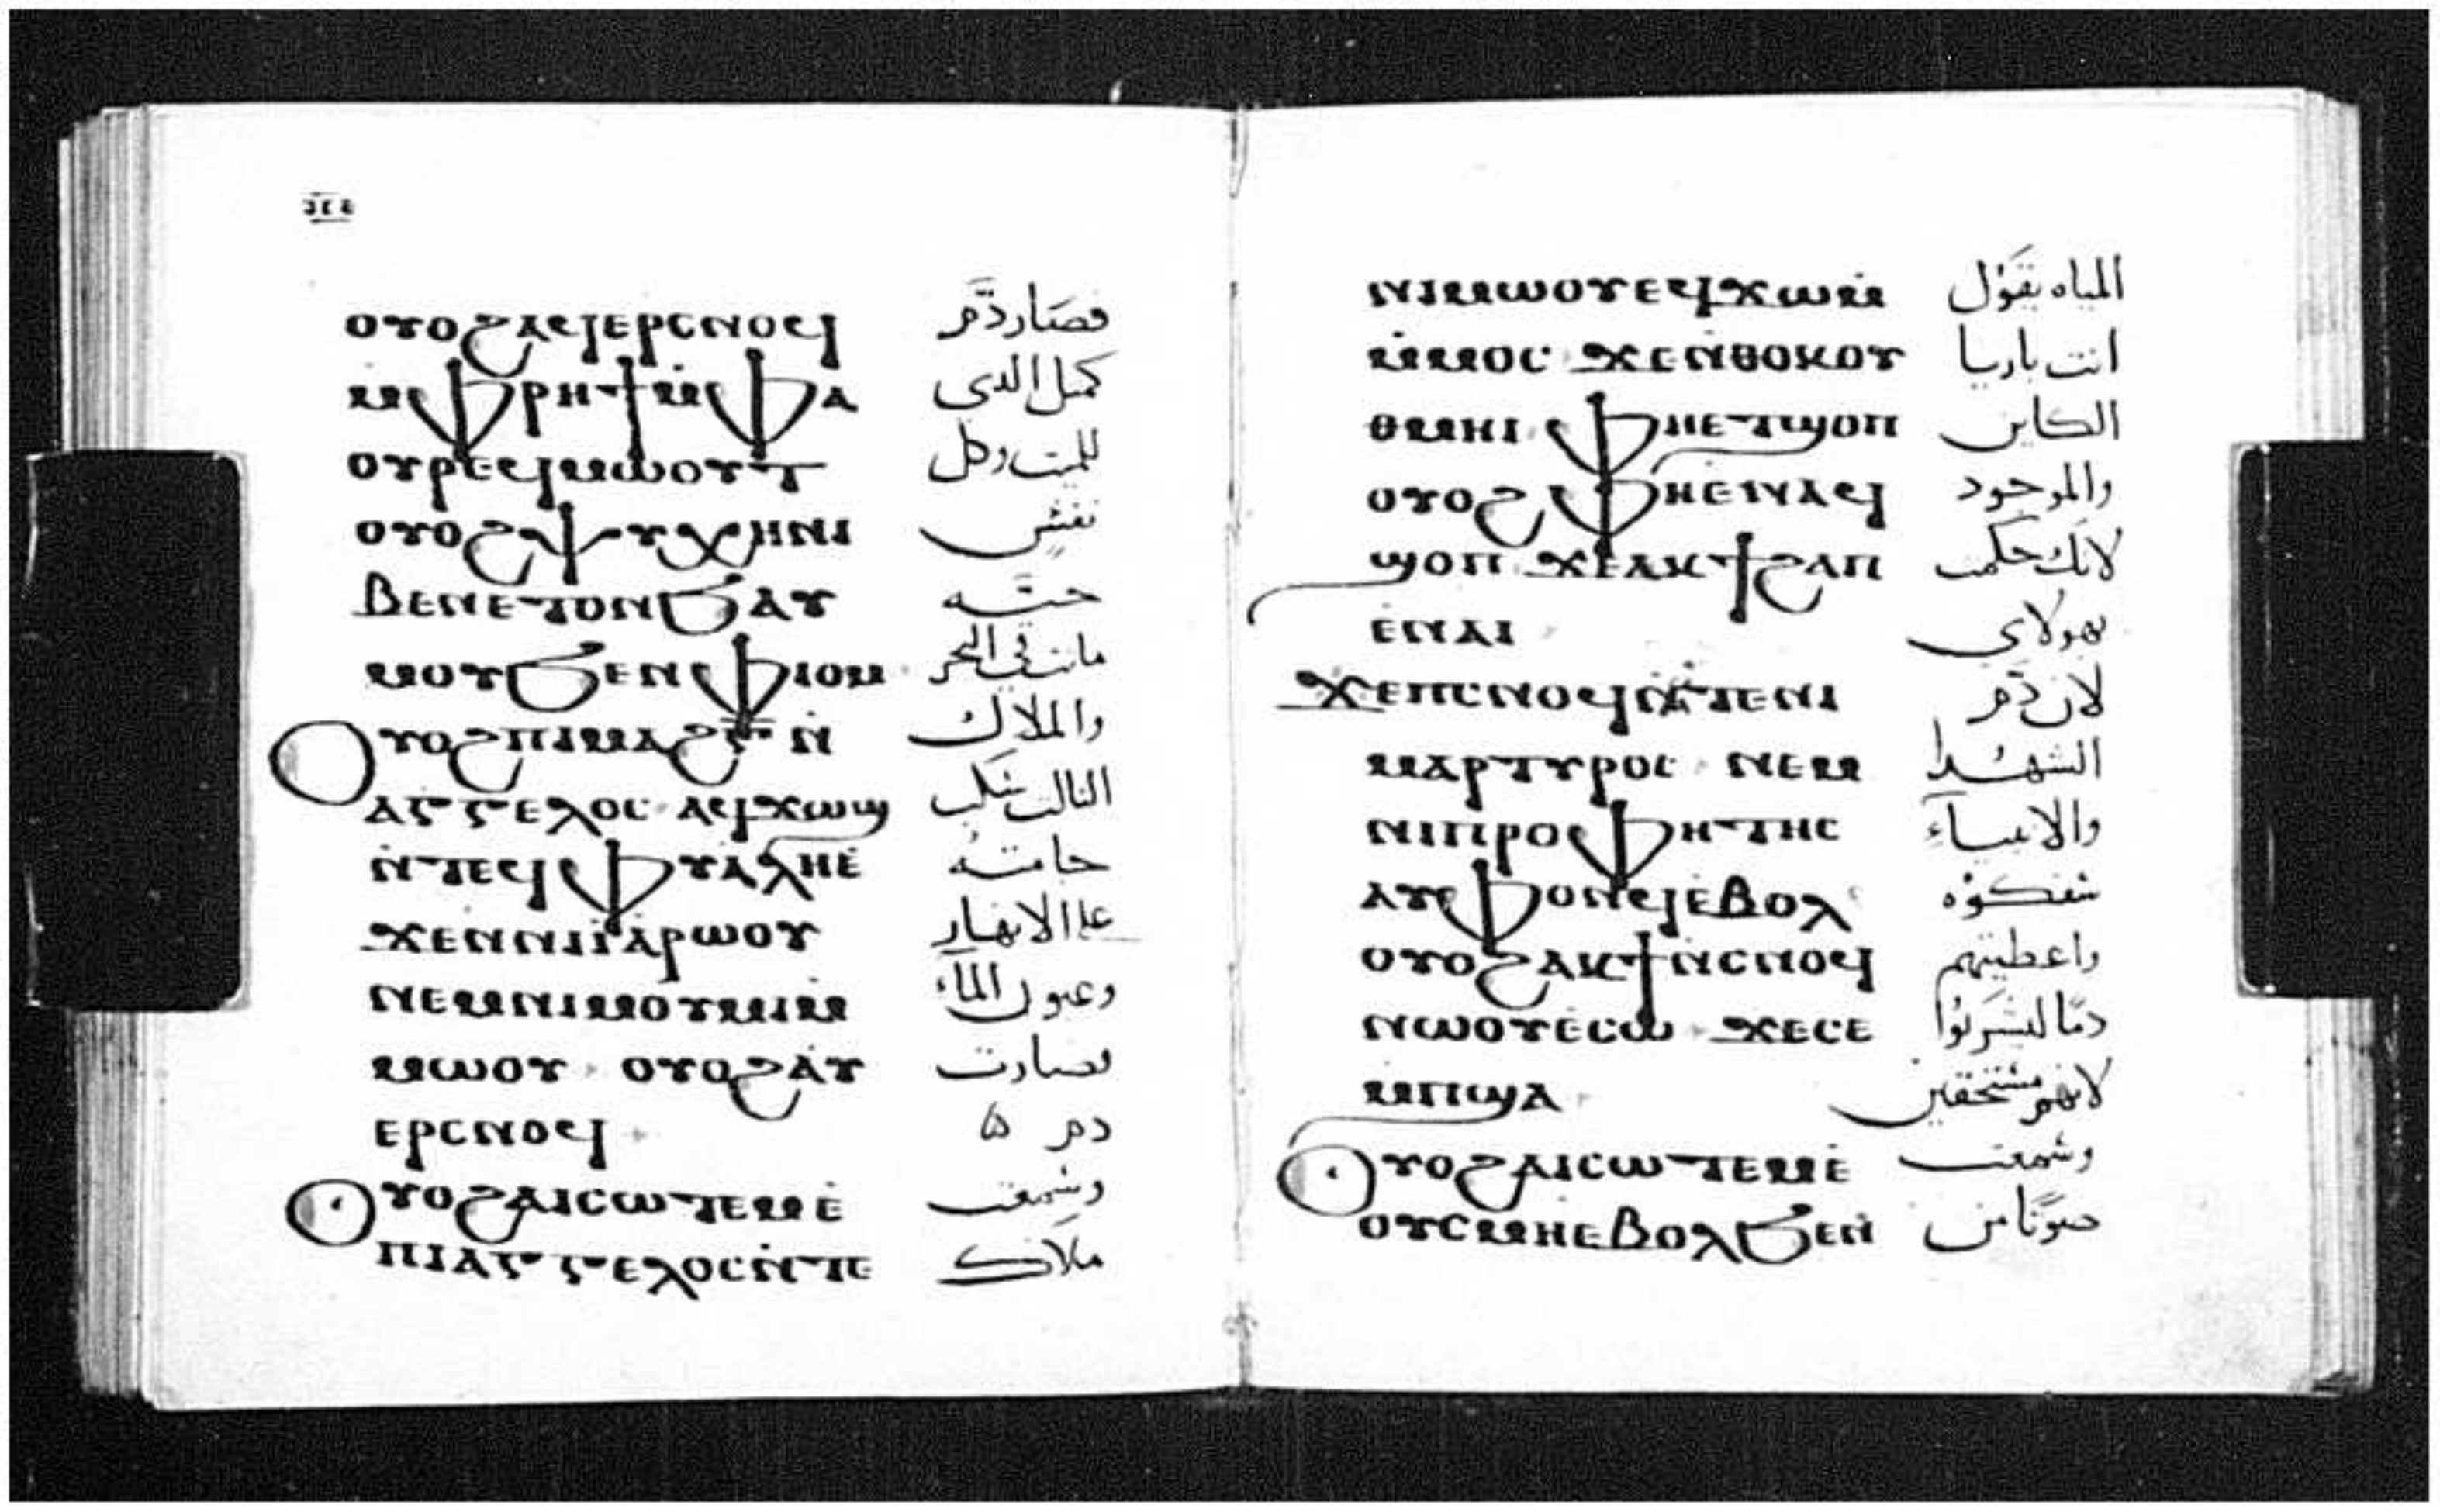 ⲟⲩⲟϩⲁϥⲉⲣⲥⲛⲟϥ فصار دَّم
ⲙ̀ⲫⲣⲏϯⲙ̀ⲫⲁ كمل الدى
ⲟⲩⲣⲉϥⲙⲱⲟⲩⲧ للميت وكل
ⲟⲩⲟϩⲯⲩⲭⲏⲛⲓ نفسٍ
ⲃⲉⲛⲉⲧⲟⲛϧⲁⲩ حيَّه
ⲙⲟⲩϧⲉⲛⲫⲓⲟⲙ ماتت في البحر
ⲟⲩⲟϩⲡⲓⲙⲁϩⲅ̄ⲛ̀ والملاك
ⲁⲅⲅⲉⲗⲟⲥ ⲁϥϫⲱϣ الثالث سَكب
ⲛ̀ⲧⲉϥⲫⲩⲁⲗⲏⲉ̀ جامتهُ
ϫⲉⲛⲛⲓⲓⲁⲣⲱⲟⲩ علا الانهار
ⲛⲉⲙⲛⲓⲙⲟⲩⲙⲓⲙ̀ وعيون الماء
ⲙⲱⲟⲩ ⲟⲩⲟϩⲁⲩ فصارت
ⲉⲣⲥⲛⲟϥ دم
ⲟⲩⲟϩⲁⲓⲥⲱⲧⲉⲙⲉ̀ وسمعت
ⲡⲓⲁⲅⲅⲉⲗⲟⲥⲛ̀ⲧⲉ ملاك
ⲛⲓⲙⲱⲟⲩⲉϥϫⲱⲙ̀ المياه يقَوْل
ⲙ̀ⲙⲟⲥ ϫⲉⲛⲑⲟⲕⲟⲩ انت باريا
ⲑⲙⲏⲓ ⲫⲏⲉⲧϣⲟⲡ الكاين
ⲟⲩⲟϩ ⲫⲏⲉ̀ⲛⲁϥ والموجود
ϣⲟⲡ ϫⲉⲁⲕϯϩⲁⲡ لانَك حكمت
ⲉ̀ⲛⲁⲓ بهولاى
ϫⲉⲡⲥⲛⲟϥⲛ̀ⲧⲉⲛⲓ لان دَم
ⲙⲁⲣⲧⲩⲣⲟⲥ ⲛⲉⲙ الشهُدا
ⲛⲓⲡⲣⲟⲫⲏⲧⲏⲥ والانبياء
ⲁⲩⲫⲟⲛϥⲉ̀ⲃⲟⲗ سَفكوْه
ⲟⲩⲟϩⲁⲕϯⲛ̀ⲥⲛⲟϥ واعطيتهم
ⲛⲱⲟⲩⲉ̀ⲥⲱ ϫⲉⲥⲉ دمًا ليشربُوا
ⲙⲡϣⲁ لانهم مستحقين
ⲟⲩⲟϩⲁⲓⲥⲱⲧⲉⲙⲉ̀ وسمعت
ⲟⲩⲥⲙⲏⲉⲃⲟⲗϧⲉⲛ̀ صوتًا من